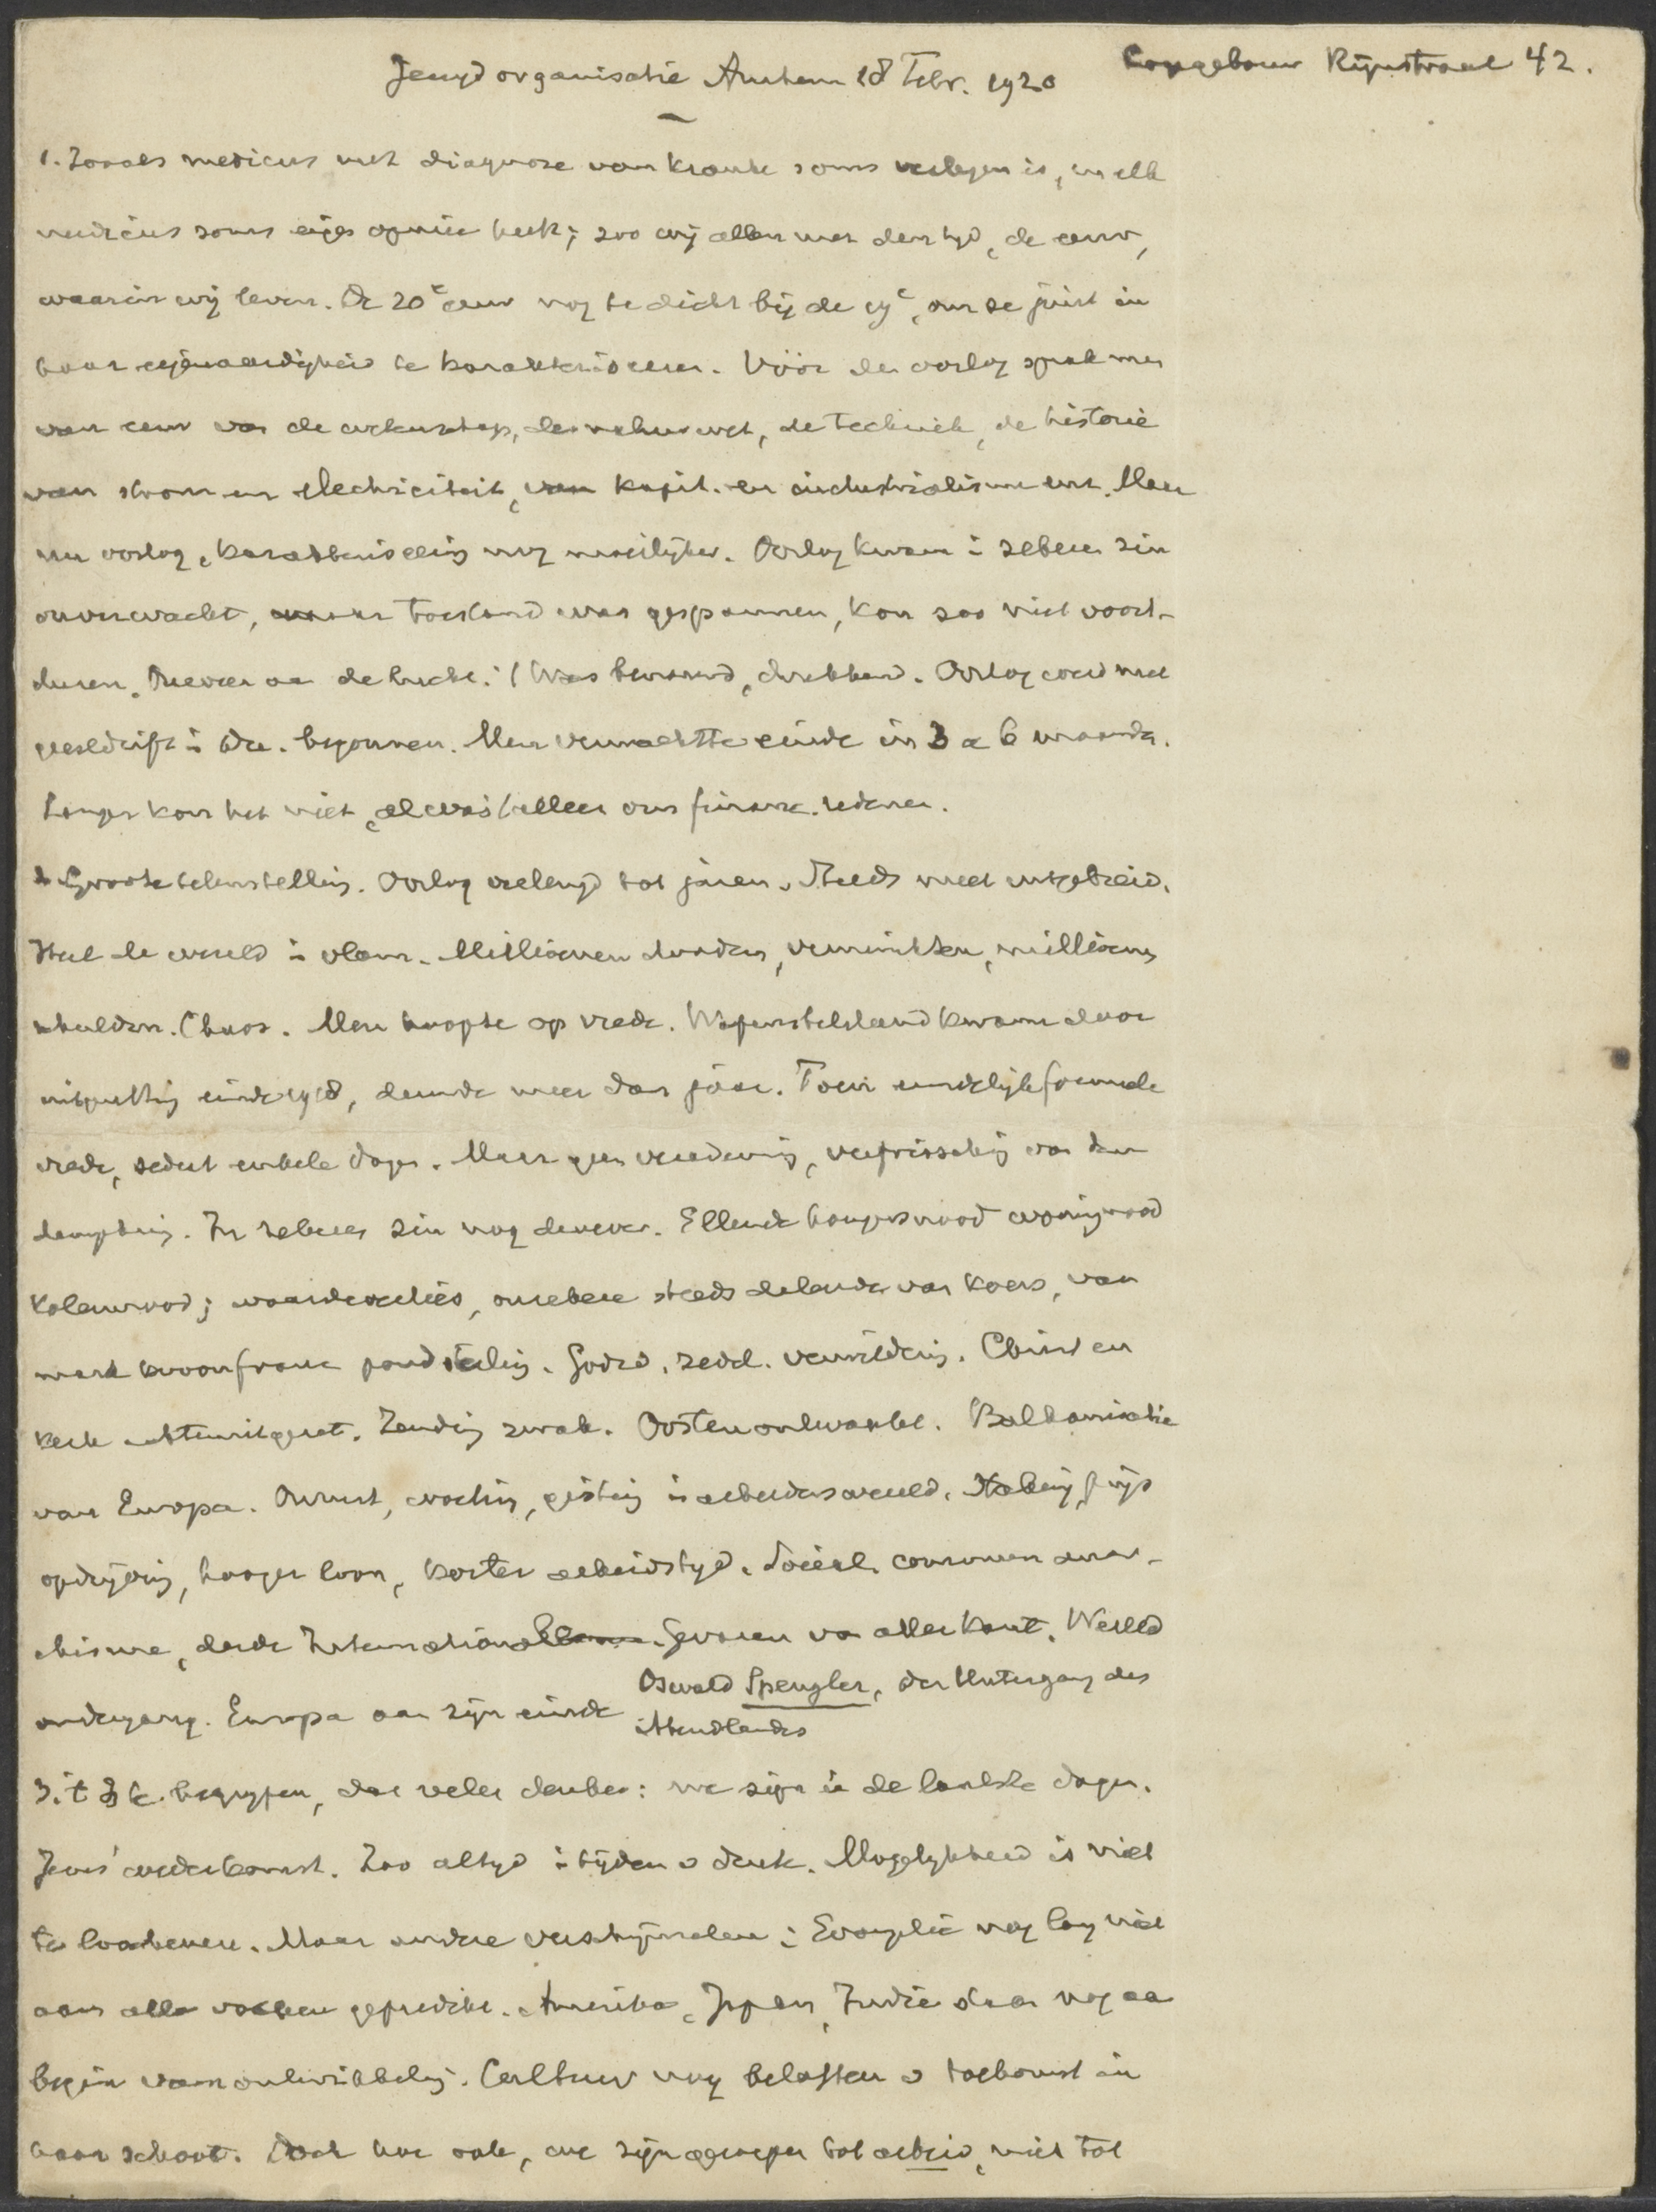 Jeugdorganisatie Arnhem 18 Febr. 1920
Logegebouw Rijnstraat 42.
1. Zooals medicus met diagnose van kranke soms verlegen is, en elk
medicus soms eigen opinie heeft; zoo wij allen met den tijd, de eeuw,
waarin wij leven. De 20e eeuw nog te dicht bij de 19e, om ze juist in
haar eigenaardigheid te karakteriseeren. Vóór den oorlog sprak men
van eeuw van de wetenschap, der natuurwet, de techniek, de historie
van stoom en electriciteit, van kapit. en industrialisme enz. Maar
nu oorlog, karakteriseering nog moeilijker. Oorlog kwam i zekeren zin
onverwacht, maar toestand was gespannen, kon zoo niet voort-
duren. Onweer aa de lucht. 't Was benauwd, drukkend. Oorlog werd met
geestdrift i Ver. begonnen. Men verwachtte einde in 3 a 6 maanden.
Langer kon het niet, al was 't alleen om financ. redenen.
2 Groote teleurstelling. Oorlog verlengd tot jaren. Steeds meer uitgebreid.
Heel de wereld i vlam. Millioenen dooden, verminkten, millioenen
schulden. Chaos. Men hoopte op vrede. Wapenstilstand kwam door
uitputting einde 1918, duurde meer dan jaar. Toen eindelijk formeele
vrede, sedert enkele dagen. Maar geen verademing, verfrissching van den
dampkring. In zekeren zin nog donker. Ellende hongersnood woningnood
kolennood; waardeverlies, onzekere steeds dalende van koers, van
mark kroon franc pond sterling. Godsd. zedel. verwildering. Christen
kerk achteruitgezet. Zending zwak. Oosten ontwaakt. Balkanisatie
van Europa. Onrust, woeling, gisting in arbeiderswereld. Staking, prijs
opdrijving, hooger loon, korter arbeidstijd. Sociaal. commun. anar-
chisme, derde Internationale. Gevaren van alle kant. Wereld
ondergang. Europa aan zijn einde Oswald Spengler, der Untergang des
Abendlandes
3. 't Is te begrijpen, dat velen denken: we zijn in de laatste dagen.
Jezus' wederkomst. Zoo altyd i tijden v druk. Mogelijkheid is niet
te loochenen. Maar andere verschijnselen: Evangelie nog lang niet
aan alle volken gepredikt. Amerika, Japan, Indië staan nog aa
begin van ontwikkeling. Cultuur nog beloften v toekomst in
haar schoot. Doch hoe ook, we zijn geroepen tot arbeid, niet tot